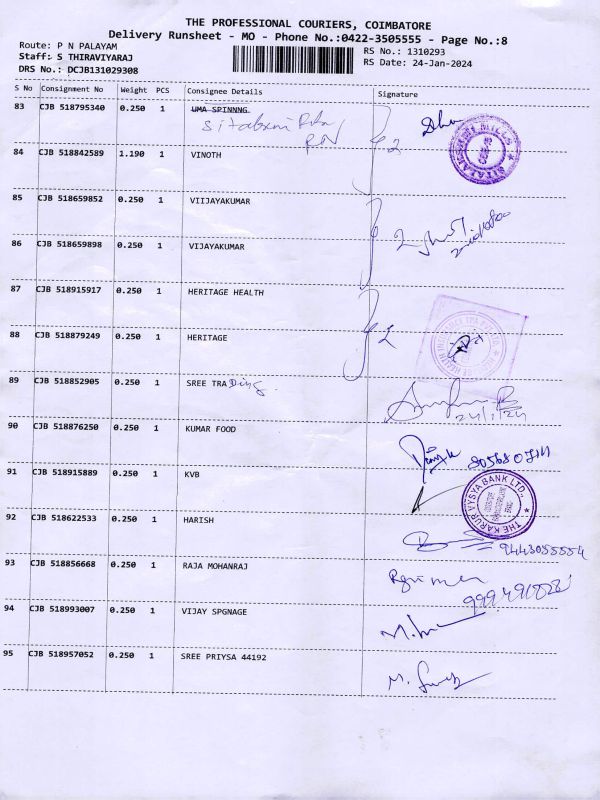 THE PROFESSIONAL COURIERS, COIMBATORE
Delivery Runsheet - MO - Phone No.:0422-3505555 - Page No.:8
Route: P N PALAYAM
RS No.: 1310293
Staff: S THIRAVIYARAJ
RS Date: 24-Jan-2024
DRS No.: DCJB131029308
S No Consignment No Weight PCS Consignee Details Signature
83 CJB 518795340 0.250 1 UMA SPINNNG
84 CJB 518842589 1.190 1 VINOTH
2
SITALAKSHMI MILLS
85 CJB 518659852 0.250 1 VIIJAYAKUMAR
86 CJB 518659898 0.250 1 VIJAYAKUMAR
2
87 CJB 518915917 0.250 1 HERITAGE HEALTH
88 CJB 518879249 0.250 1 HERITAGE
2
89 CJB 518852905 0.250 1 SREE TRADing.
24/1/24
90 CJB 518876250 0.250 1 KUMAR FOOD
91 CJB 518915889 0.250 1 KVB
THE KARUR VYSYA BANK LTD.,
92 CJB 518622533 0.250 1 HARISH
9443055554
93 CJB 518856668 0.250 1 RAJA MOHANRAJ
94 CJB 518993007 0.250 1 VIJAY SPGNAGE
95 CJB 518957052 0.250 1 SREE PRIYSA 44192